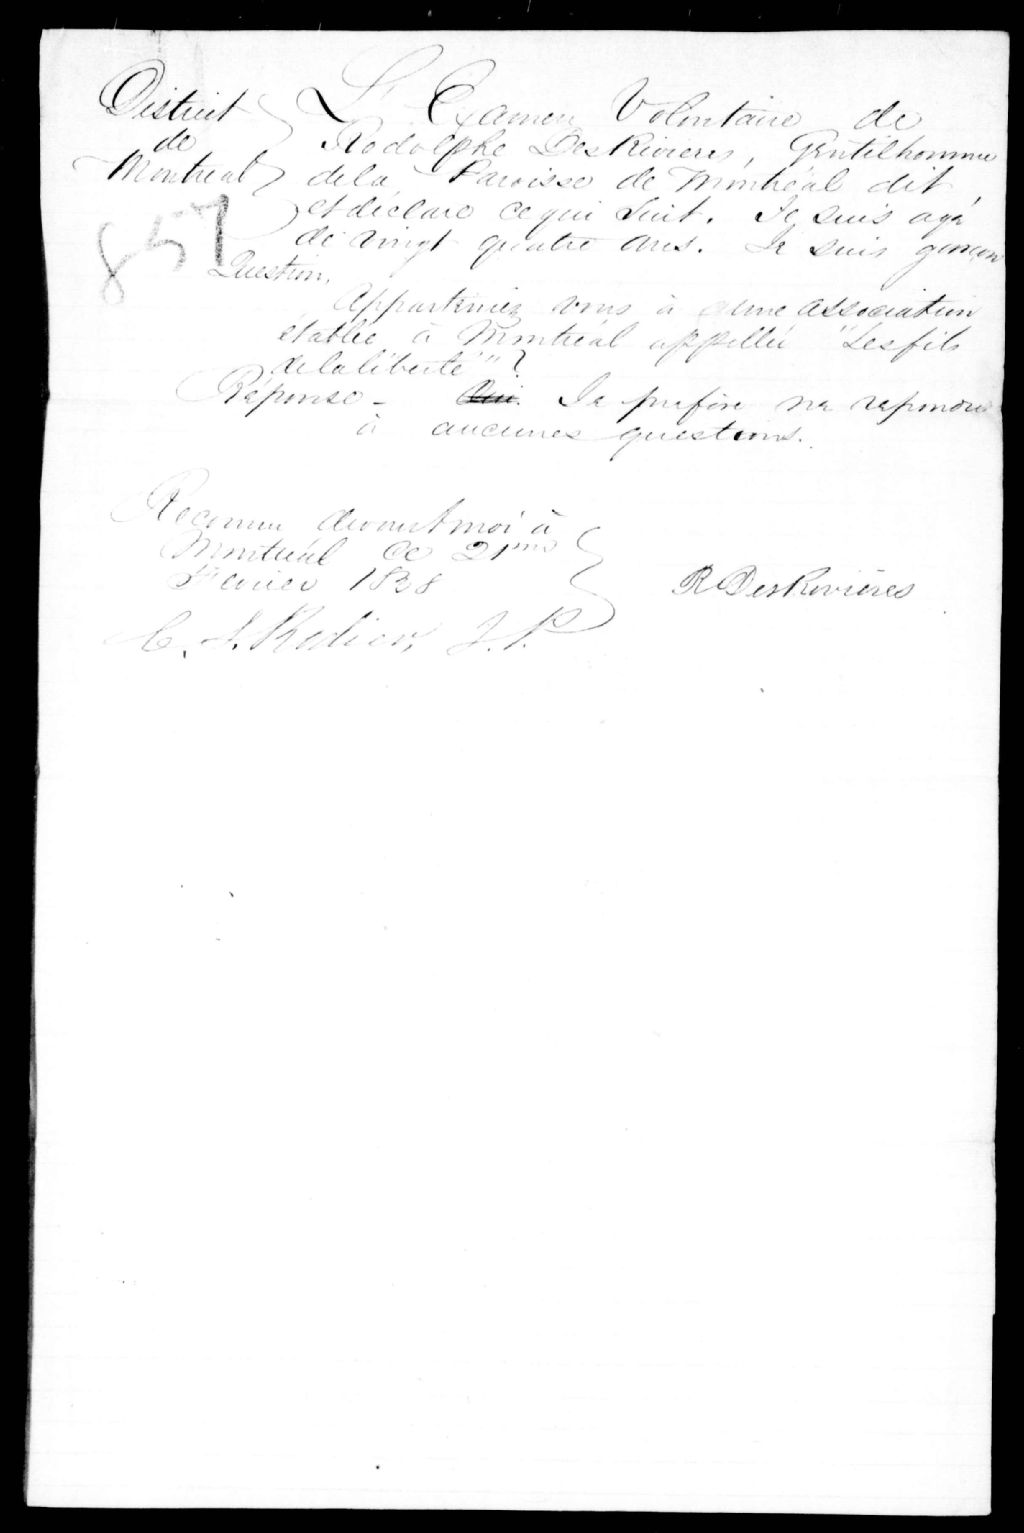 District
de
Montreal
857
L'Examen Volontaire de
Rodolphe DesRivieres, Gentilhomme
de la Paroisse de Montréal dit
et declare ce qui suit. Je suis agé
de vingt quatre ans. Je suis garçon
Question,
Apparteniez vous à une association
établie à Montréal appellée "Les fils
de la liberté"?
Réponse - Oui. Je prefère ne repondre
à aucunes questions.
Reconnu devant moi à
Montréal ce 21me
Fevrier 1838
R DesRivières
J. P.